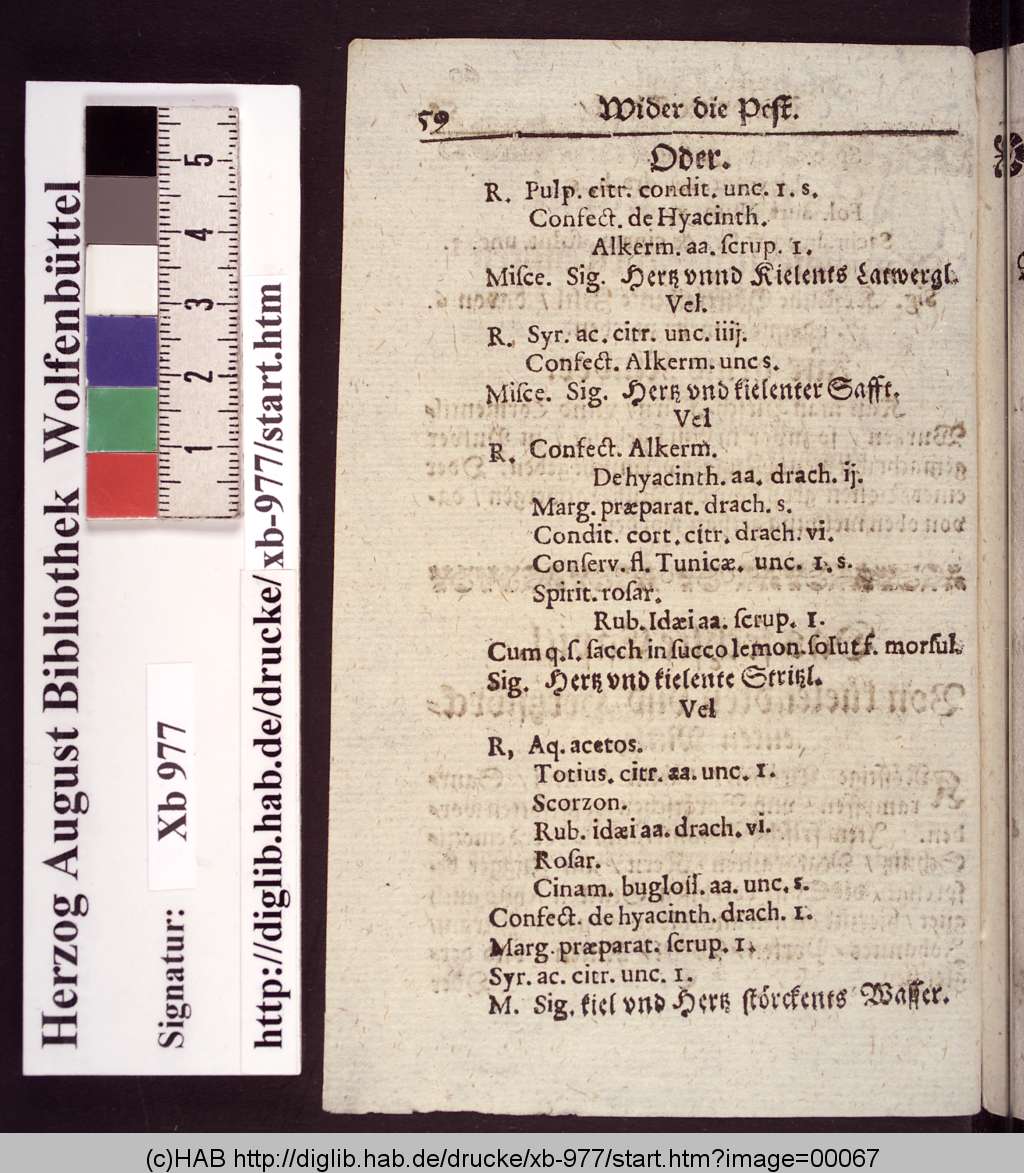 Herzog August Bibliothek Wolfenbüttel
Signatur: Xb 977
http://diglib.hab.de/drucke/xb-977/start.htm
5
4
3
2
1
59 Wider die Pest.
Oder.
R. Pulp. citr. condit. unc. 1. s.
Confect. de Hyacinth.
Alkerm. aa. ſcrup. 1.
Miſce. Sig. Hertz vnnd Kielents Latwergl.
Vel.
R. Syr. ac. citr. unc. iiij.
Confect. Alkerm. unc s.
Miſce. Sig. Hertz vnd kielenter Safft.
Vel
R. Confect. Alkerm.
De hyacinth. aa. drach. ij.
Marg. præparat. drach. s.
Condit. cort. citr. drach. vi.
Conſerv. fl. Tunicæ. unc. 1. s.
Spirit. roſar.
Rub. Idæi aa. ſcrup. 1.
Cum q. ſ. ſacch in ſucco lemon. ſolut f. morſul.
Sig. Hertz vnd kielente Stritzl.
Vel
R, Aq. acetos.
Totius. citr. aa. unc. 1.
Scorzon.
Rub. idæi aa. drach. vi.
Roſar.
Cinam. bugloſſ. aa. unc. s.
Confect. de hyacinth. drach. 1.
Marg. præparat. ſcrup. 1.
Syr. ac. citr. unc. 1.
M. Sig. kiel vnd Hertz störckents Waſſer.
(c)HAB http://diglib.hab.de/drucke/xb-977/start.htm?image=00067